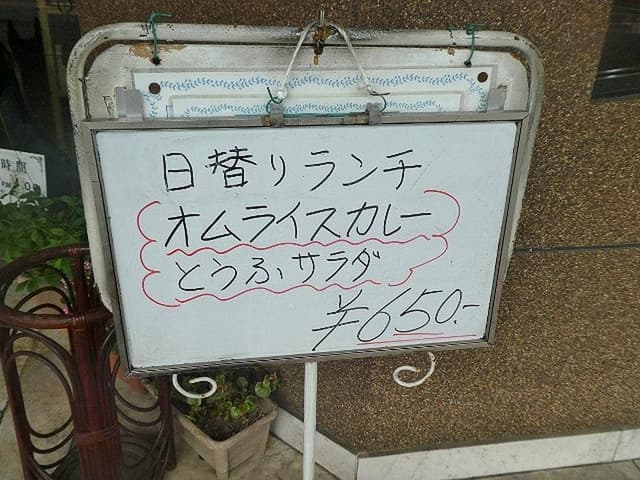 日替りランチ
オムライスカレー
とうふサラダ
¥650.-
時間